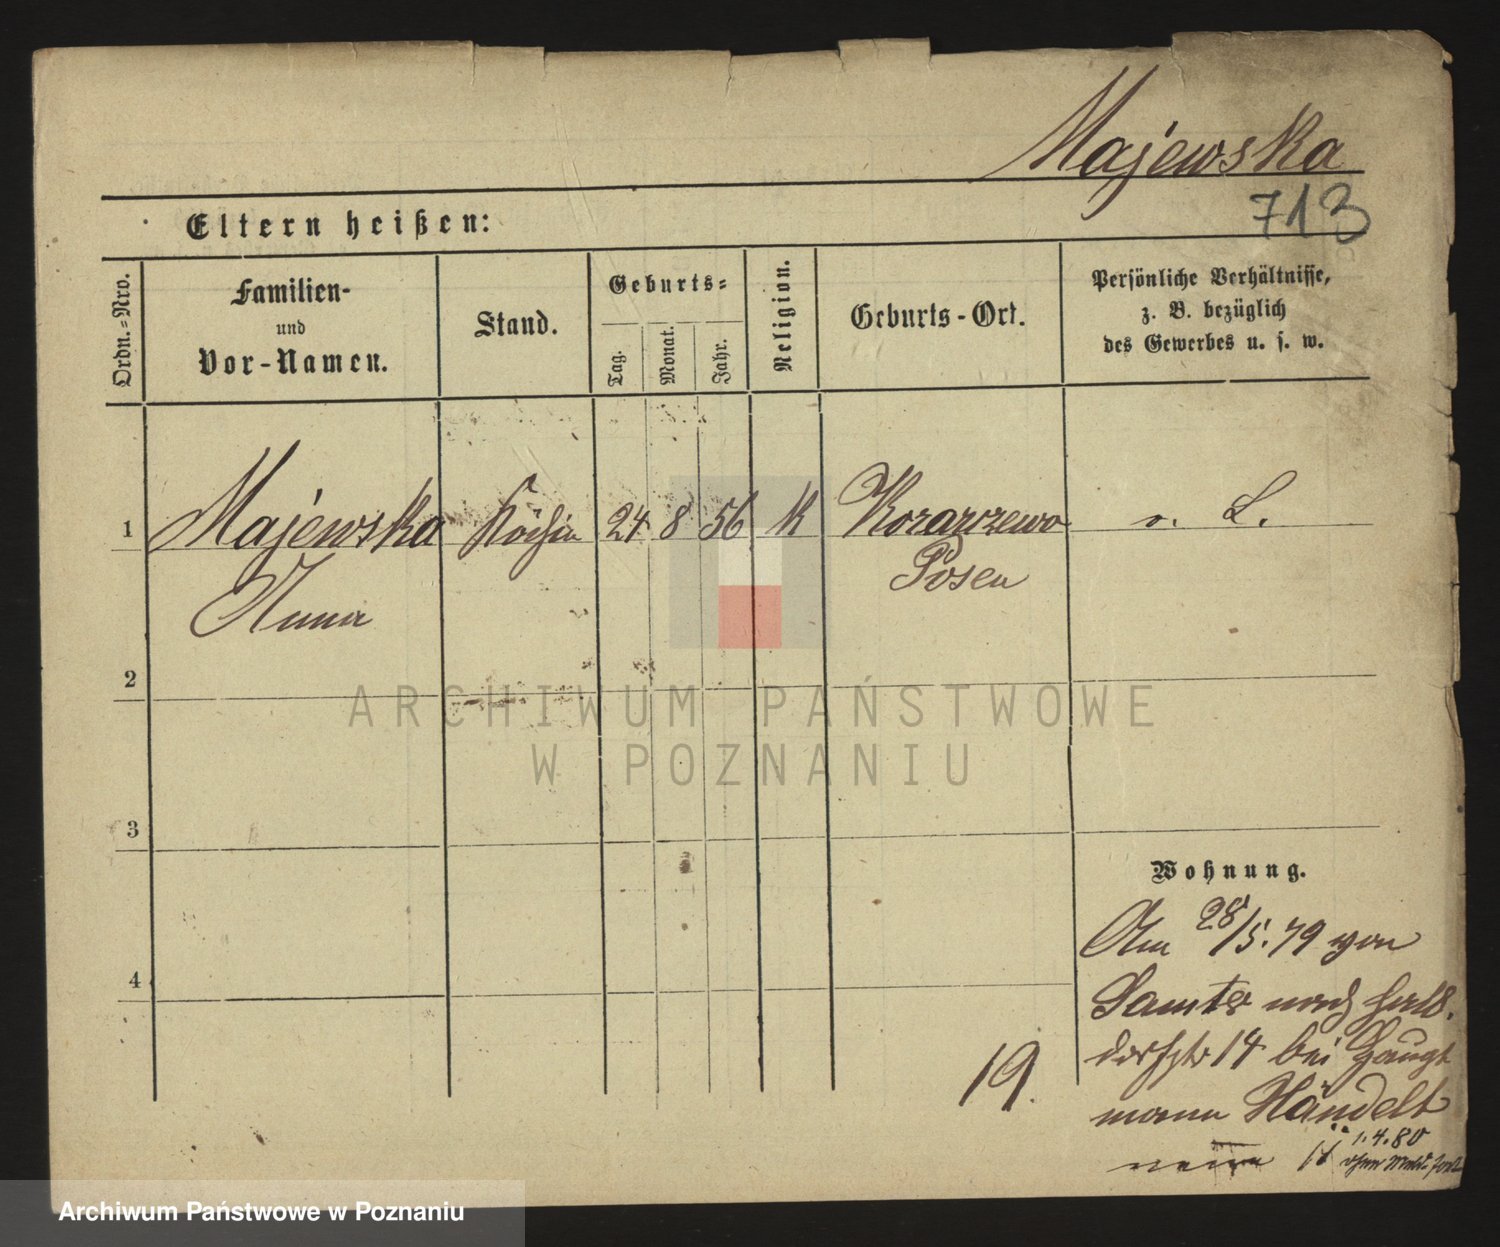 Majewska
713
Eltern heißen:
Ordn.=Nro.
Familien-
und
Vor-Namen.
Stand.
Geburts=
Tag.
Monat.
Jahr.
Religion.
Geburts-Ort.
Persönliche Verhältnisse,
z. B. bezüglich
des Gewerbes u. s. w.
1 Majewska Köchin 24 8 56 K Kozarzewo
Anna Posen
2
ARCHIWUM PAŃSTWOWE
W POZNANIU
3
Wohnung.
Am 28/5.79 von
4
Samter nach Halb.
dorfstr 14 bei Haupt
19. mann Händelt
1.4.80
Archiwum Państwowe w Poznaniu